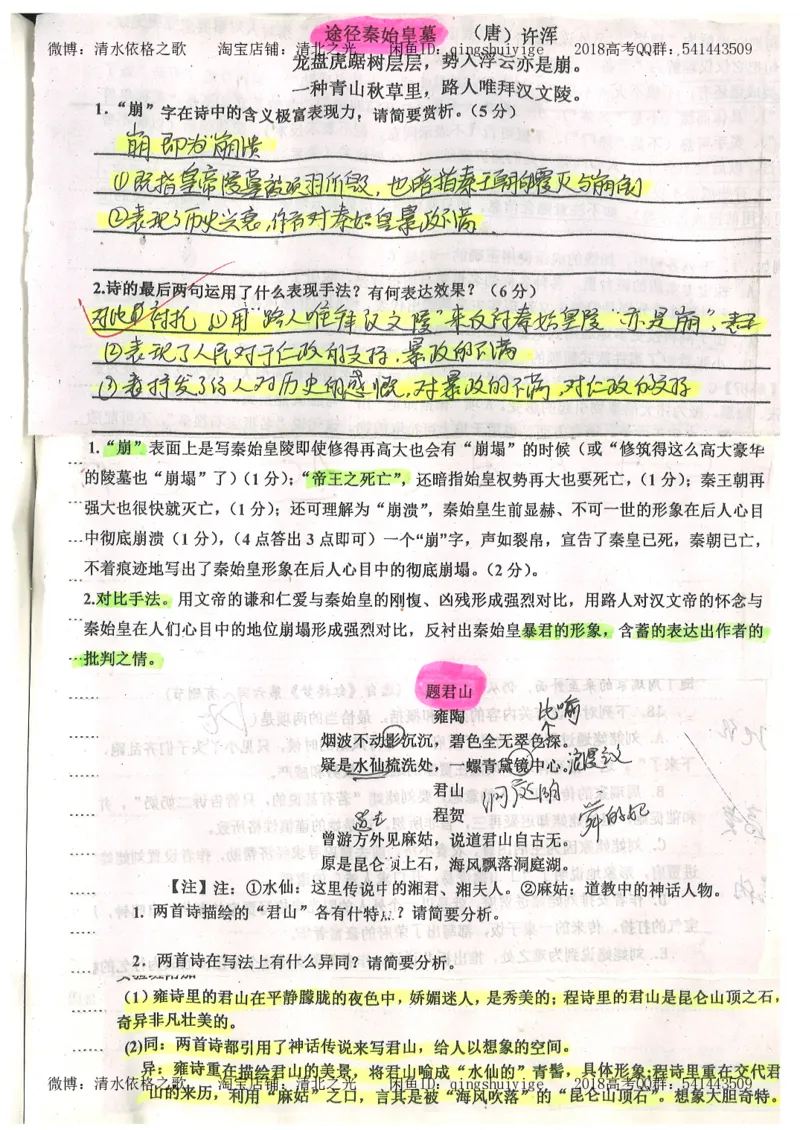 途径秦始皇墓 （唐）许浑
微博：清水依格之歌 淘宝店铺：清北之光 闲鱼ID：qingshuiyige 2018高考QQ群：541443509
龙盘虎踞树层层，势入浮云亦是崩。
一种青山秋草里，路人唯拜汉文陵。
1. “崩”字在诗中的含义极富表现力，请简要赏析。（5分）
崩 即为“崩溃”
①既指皇帝陵墓 所毁，也暗指秦王朝的 灭与崩
②表现了历史兴衰，作者对秦始皇暴政不满
2.诗的最后两句运用了什么表现手法？有何表达效果？（6分）
对比 衬托 ①用“路人唯拜汉文陵”来反衬秦始皇陵“亦是崩”，
②表现了人民对于仁政的支持，暴政的不满
③ 抒发了诗人对历史的感慨，对暴政的不满，对仁政的支持
1.“崩”表面上是写秦始皇陵即使修得再高大也会有“崩塌”的时候（或“修筑得这么高大豪华
的陵墓也“崩塌”了）（1分）；“帝王之死亡”，还暗指始皇权势再大也要死亡，（1分）；秦王朝再
强大也很快就灭亡，（1分）；还可理解为“崩溃”，秦始皇生前显赫、不可一世的形象在后人心目
中彻底崩溃（1分），（4点答出3点即可）一个“崩”字，声如裂帛，宣告了秦皇已死，秦朝已亡，
不着痕迹地写出了秦始皇形象在后人心目中的彻底崩塌。（2分）。
2.对比手法。用文帝的谦和仁爱与秦始皇的刚愎、凶残形成强烈对比，用路人对汉文帝的怀念与
秦始皇在人们心目中的地位崩塌形成强烈对比，反衬出秦始皇暴君的形象，含蓄的表达出作者的
批判之情。
题君山
雍陶 比喻
烟波不动影沉沉，碧色全无翠色深。
疑是水仙梳洗处，一螺青黛镜中心。
君山 洞庭湖
程贺 舜的妃
道士
曾游方外见麻姑，说道君山自古无。
原是昆仑山顶上石，海风飘落洞庭湖。
【注】注：①水仙：这里传说中的湘君、湘夫人。②麻姑：道教中的神话人物。
1. 两首诗描绘的“君山”各有什特点？请简要分析。
2．两首诗在写法上有什么异同？请简要分析。
（1）雍诗里的君山在平静朦胧的夜色中，娇媚迷人，是秀美的；程诗里的君山是昆仑山顶之石，
奇异非凡壮美的。
(2)同：两首诗都引用了神话传说来写君山，给人以想象的空间。
异：雍诗重在描绘君山的美景，将君山喻成“水仙的”青髻，具体形象；程诗里重在交代君
微博：清水依格之歌 淘宝店铺：清北之光 闲鱼ID：qingshuiyige 2018高考QQ群：541443509
山的来历，利用“麻姑”之口，言其是被“海风吹落”的“昆仑山顶石”。想象大胆奇特。